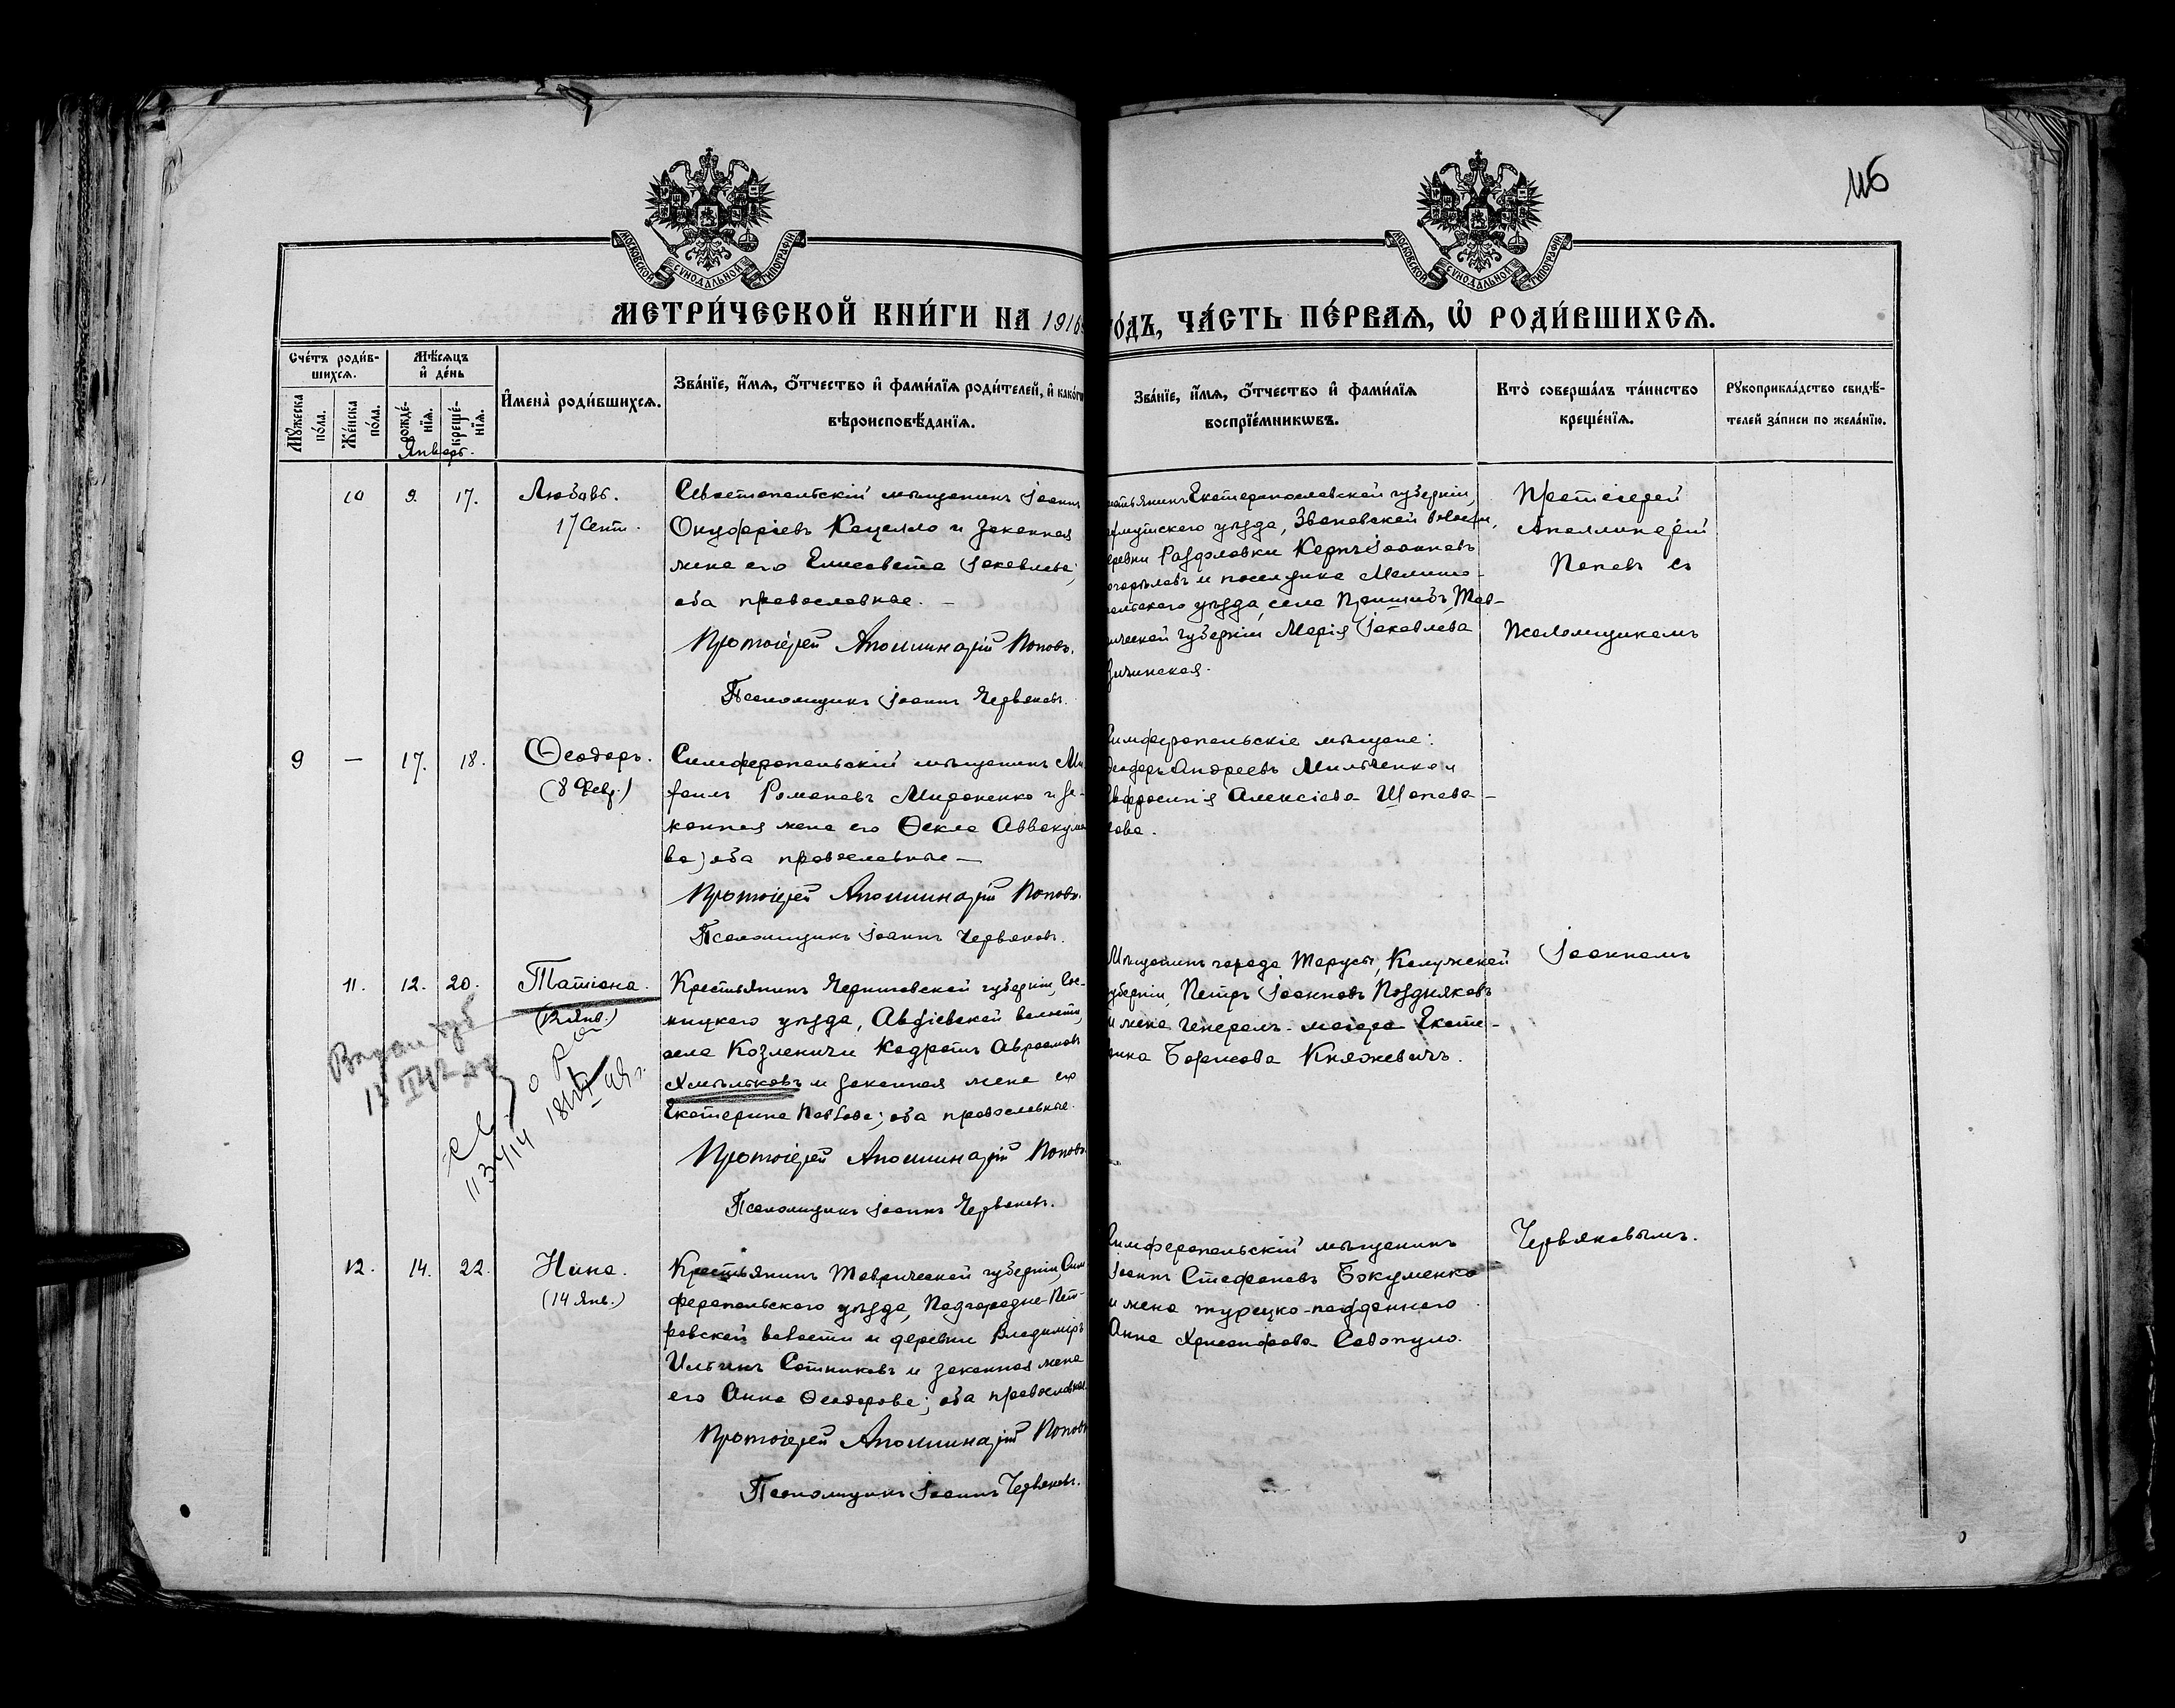 116
МОСКОВСКОЙ СѴНОДАЛЬНОЙ ТИПОГРАФІИ
МОСКОВСКОЙ СѴНОДАЛЬНОЙ ТИПОГРАФІИ
МЕТРИ́ЧЕСКОЙ КНИ́ГИ НА 1916
ГО́ДЪ, ЧА́СТЬ ПЕ́РВАѦ, Ѡ҆ РОДИ́ВШИХСѦ.
Сче́тъ роди́в-
шихсѧ.
Мꙋ́жеска по́ла.
Же́нска по́ла.
Мѣ́сѧцъ
и҆ де́нь
рожде́-
нїѧ.
креще́-
нїѧ.
И҆мена̀ роди́вшихсѧ.
Зва́нїе, и҆́мѧ, ѻ҆́тчество и҆ фами́лїѧ роди́телей, и҆ како́гѡ
вѣроисповѣ́данїѧ.
Зва́нїе, и҆́мѧ, ѻ҆́тчество и҆ фами́лїѧ
воспрїе́мникѡвъ.
Кто̀ соверша́лъ та́инство
креще́нїѧ.
Рꙋкоприкла́дство свидѣ́-
телей за́писи по жела́нїю.
Январь.
10 9. 17. Любовь.
17 Сент.
Севастопольскій мѣщанинъ Іоаннъ
Онуфріевъ Кацелло и законная
жена его Елисавета Іаковлева;
оба православные. —
Протоіерей Аполлинарій Поповъ.
Псаломщикъ Іоаннъ Червяковъ.
Екатеринославской губерніи,
уѣзда, Звановской волости,
Раздоловки Іоанновъ
и поселянка Мелито-
польскаго уѣзда, села Пришибъ, Тав-
рической губерніи Марія Іаковлева
Протоіерей
Аполлинарій
Поповъ съ
Псаломщикомъ
9 — 17. 18. Ѳеодоръ.
(8 Февр.)
Симферопольскій мѣщанинъ Ми-
хаилъ Романовъ Мироненко и за-
конная жена его Ѳекла Аввакумо-
ва; оба православные —
Протоіерей Аполлинарій Поповъ.
Псаломщикъ Іоаннъ Червяковъ.
Симферопольскіе мѣщане:
Ѳеодоръ Андреевъ Мильченко и
Евфросинія Алексіева Шапова-
лова.
11. 12. 20. Татіана.
(12 Янв.)
Крестьянинъ Черниговской губерніи, Сос-
ницкаго уѣзда, Авдіевской волости,
села Козляничи Кодратъ Авраамовъ
Хмѣльковъ и законная жена его
Екатерина Павлова; оба православные.
Протоіерей Аполлинарій Поповъ
Псаломщикъ Іоаннъ Червяковъ.
Мѣщанинъ города Тарусы, Калужской
губерніи, Петръ Іоанновъ Поздняковъ
и жена генералъ-маіора Екате-
рина Борисова Княжевичъ.
Іоанномъ
12. 14. 22. Нина.
(14 Янв.)
Крестьянинъ Таврической губерніи, Сим-
феропольскаго уѣзда, Подгородне-Пет-
ровской волости и деревни Владиміръ
Ильинъ Сотниковъ и законная жена
его Анна Ѳеодорова; оба православные.
Протоіерей Аполлинарій Поповъ
Псаломщикъ Іоаннъ Червяковъ.
Симферопольскій мѣщанинъ
Іоаннъ Стефановъ Бокуменко
и жена турецко-подданнаго
Анна Хрисанфова Савопуло.
Червяковымъ.